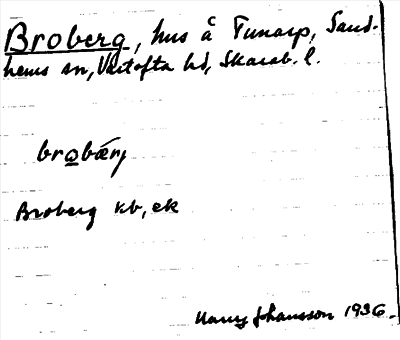 Broberg, hus å Tunarp, Sand-
hems sn, Vartofta hd, Skarab. l.
brobærj
Broberg kb, ek
Harry Johansson 1936.